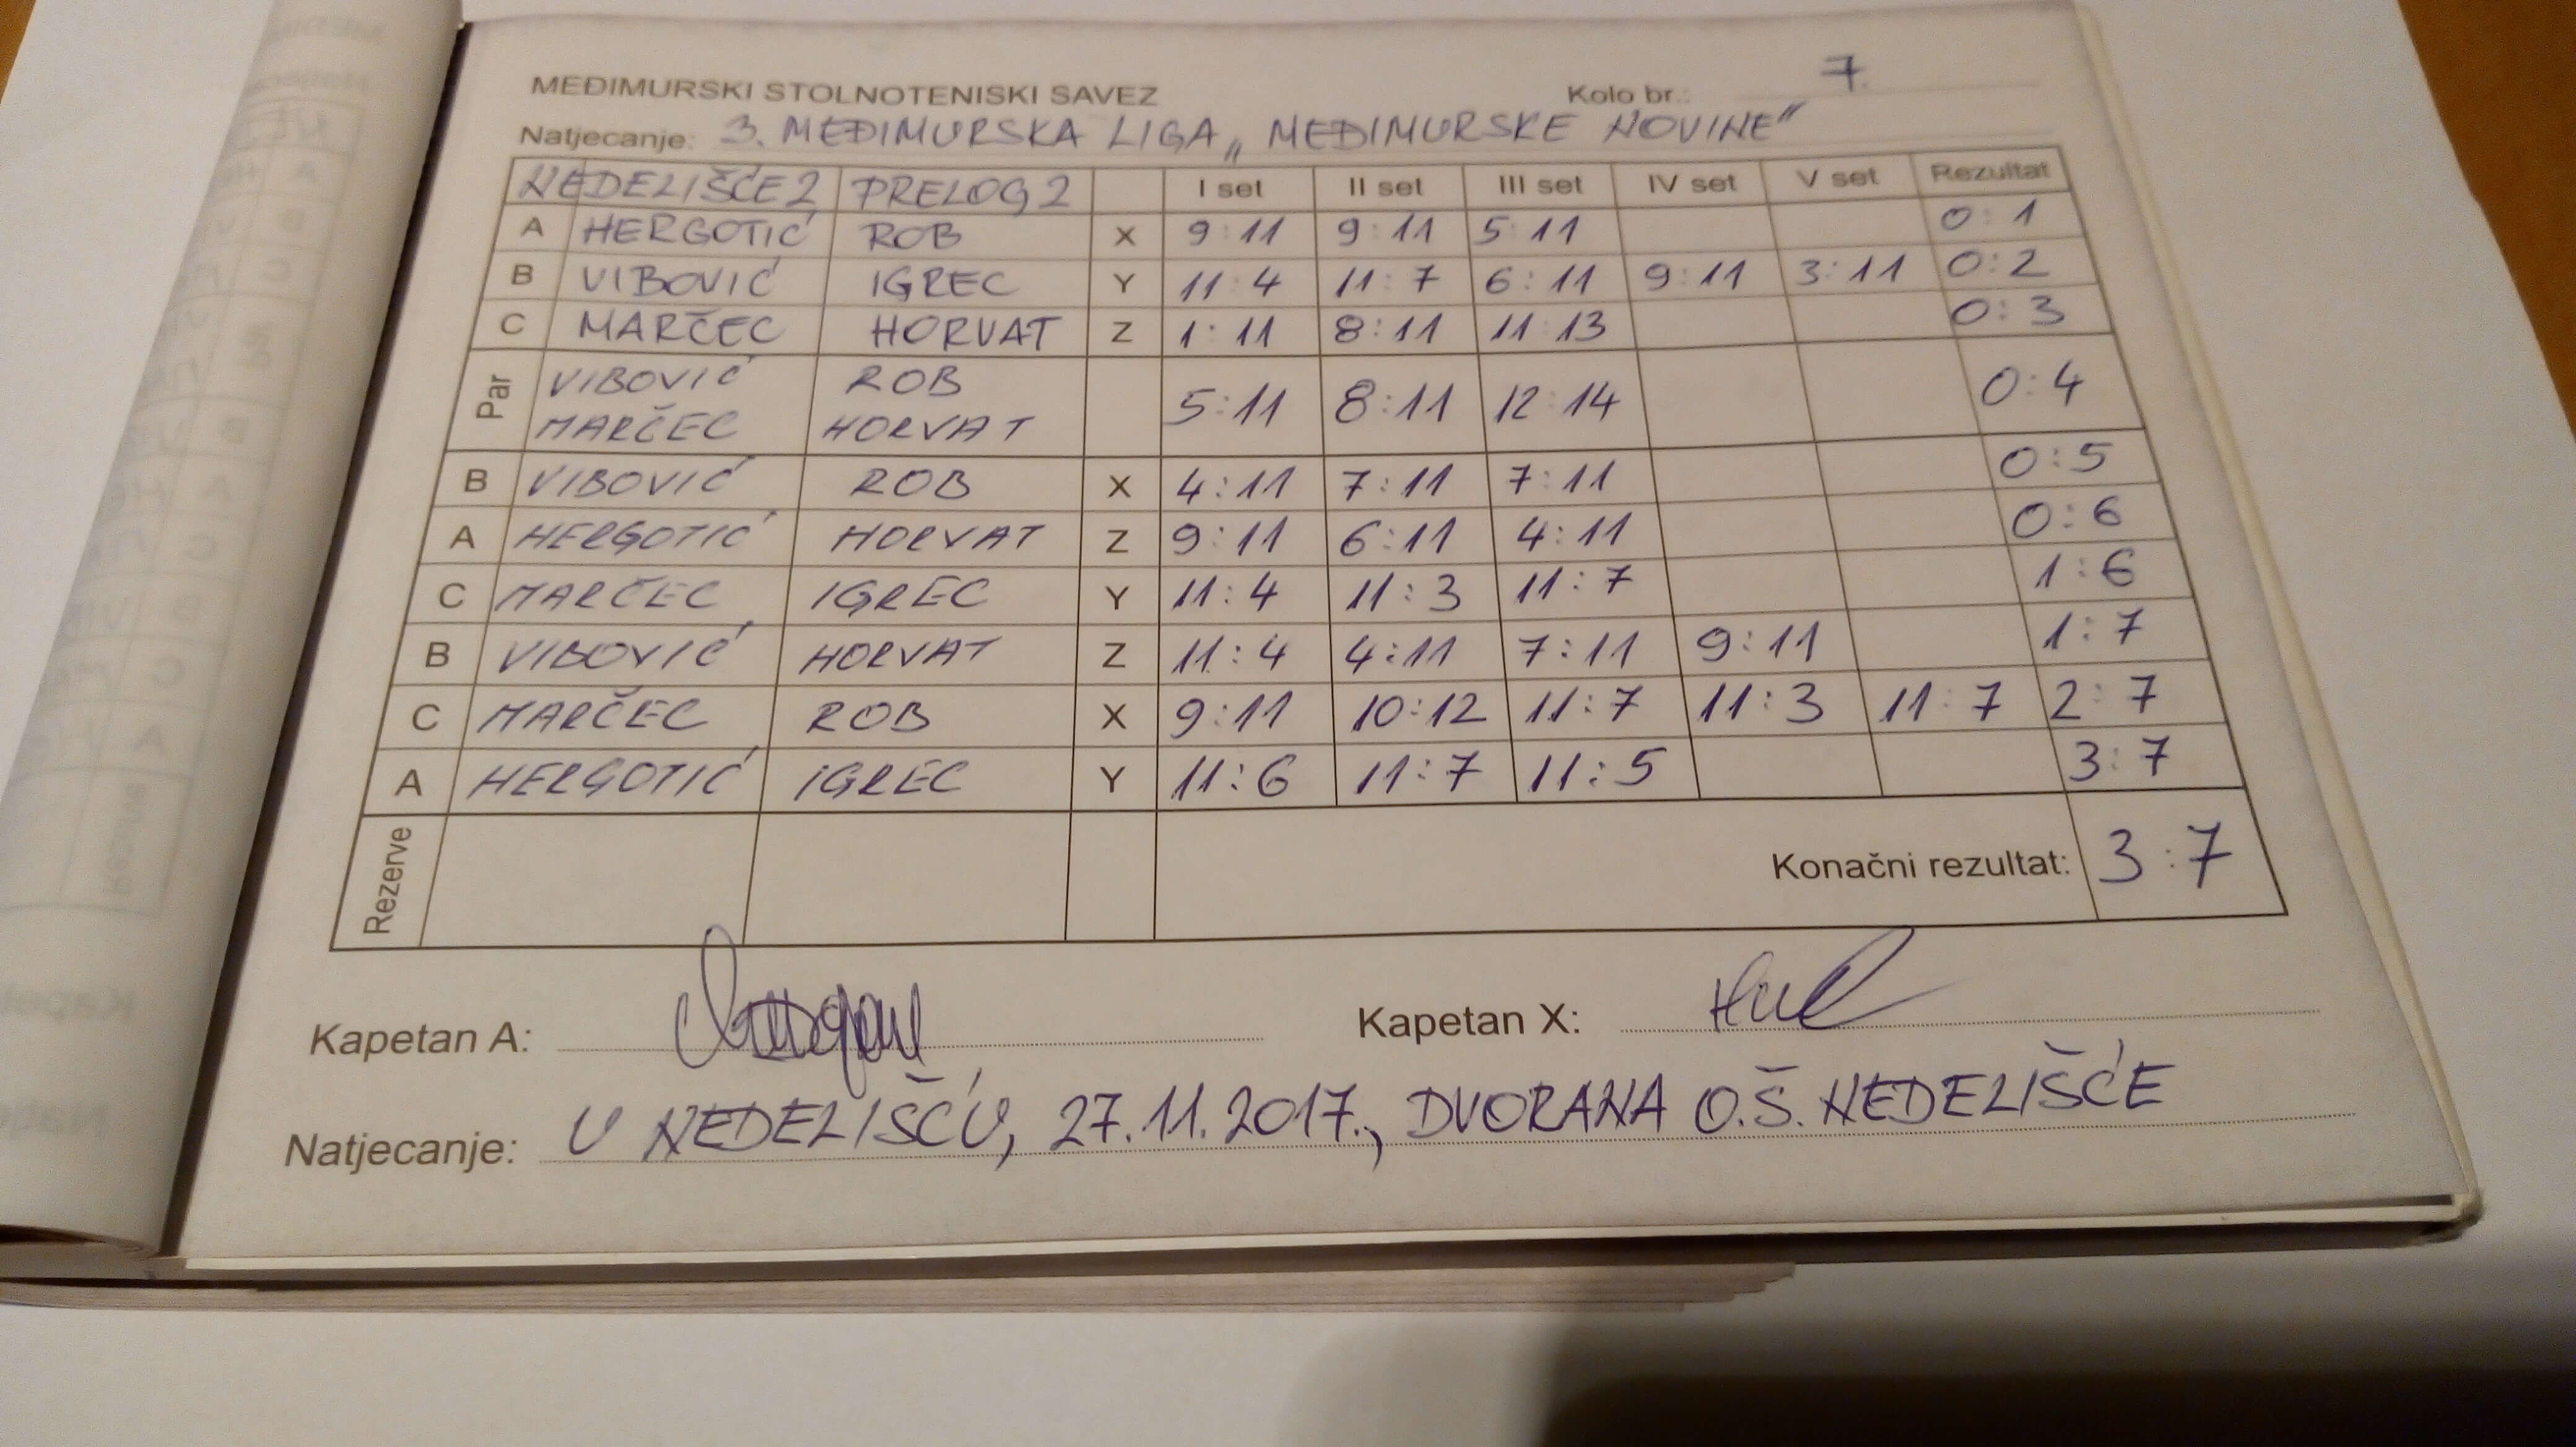 MEĐIMURSKI STOLNOTENISKI SAVEZ Kolo br.: 7.
Natjecanje: 3. MEĐIMURSKA LIGA „MEĐIMURSKE NOVINE"
NEDELIŠĆE 2 PRELOG 2 I set II set III set IV set V set Rezultat
A HERGOTIĆ ROB X 9:11 9:11 5:11 0:1
B VIBOVIĆ IGREC Y 11:4 11:7 6:11 9:11 3:11 0:2
C MARČEC HORVAT Z 1:11 8:11 11:13 0:3
Par VIBOVIĆ ROB 5:11 8:11 12:14 0:4
MARČEC HORVAT
B VIBOVIĆ ROB X 4:11 7:11 7:11 0:5
A HERGOTIĆ HORVAT Z 9:11 6:11 4:11 0:6
C MARČEC IGREC Y 11:4 11:3 11:7 1:6
B VIBOVIĆ HORVAT Z 11:4 4:11 7:11 9:11 1:7
C MARČEC ROB X 9:11 10:12 11:7 11:3 11:7 2:7
A HERGOTIĆ IGREC Y 11:6 11:7 11:5 3:7
Rezerve Konačni rezultat: 3:7
Kapetan A: Kapetan X:
Natjecanje: U NEDELIŠĆU, 27.11.2017., DVORANA O.Š. NEDELIŠĆE